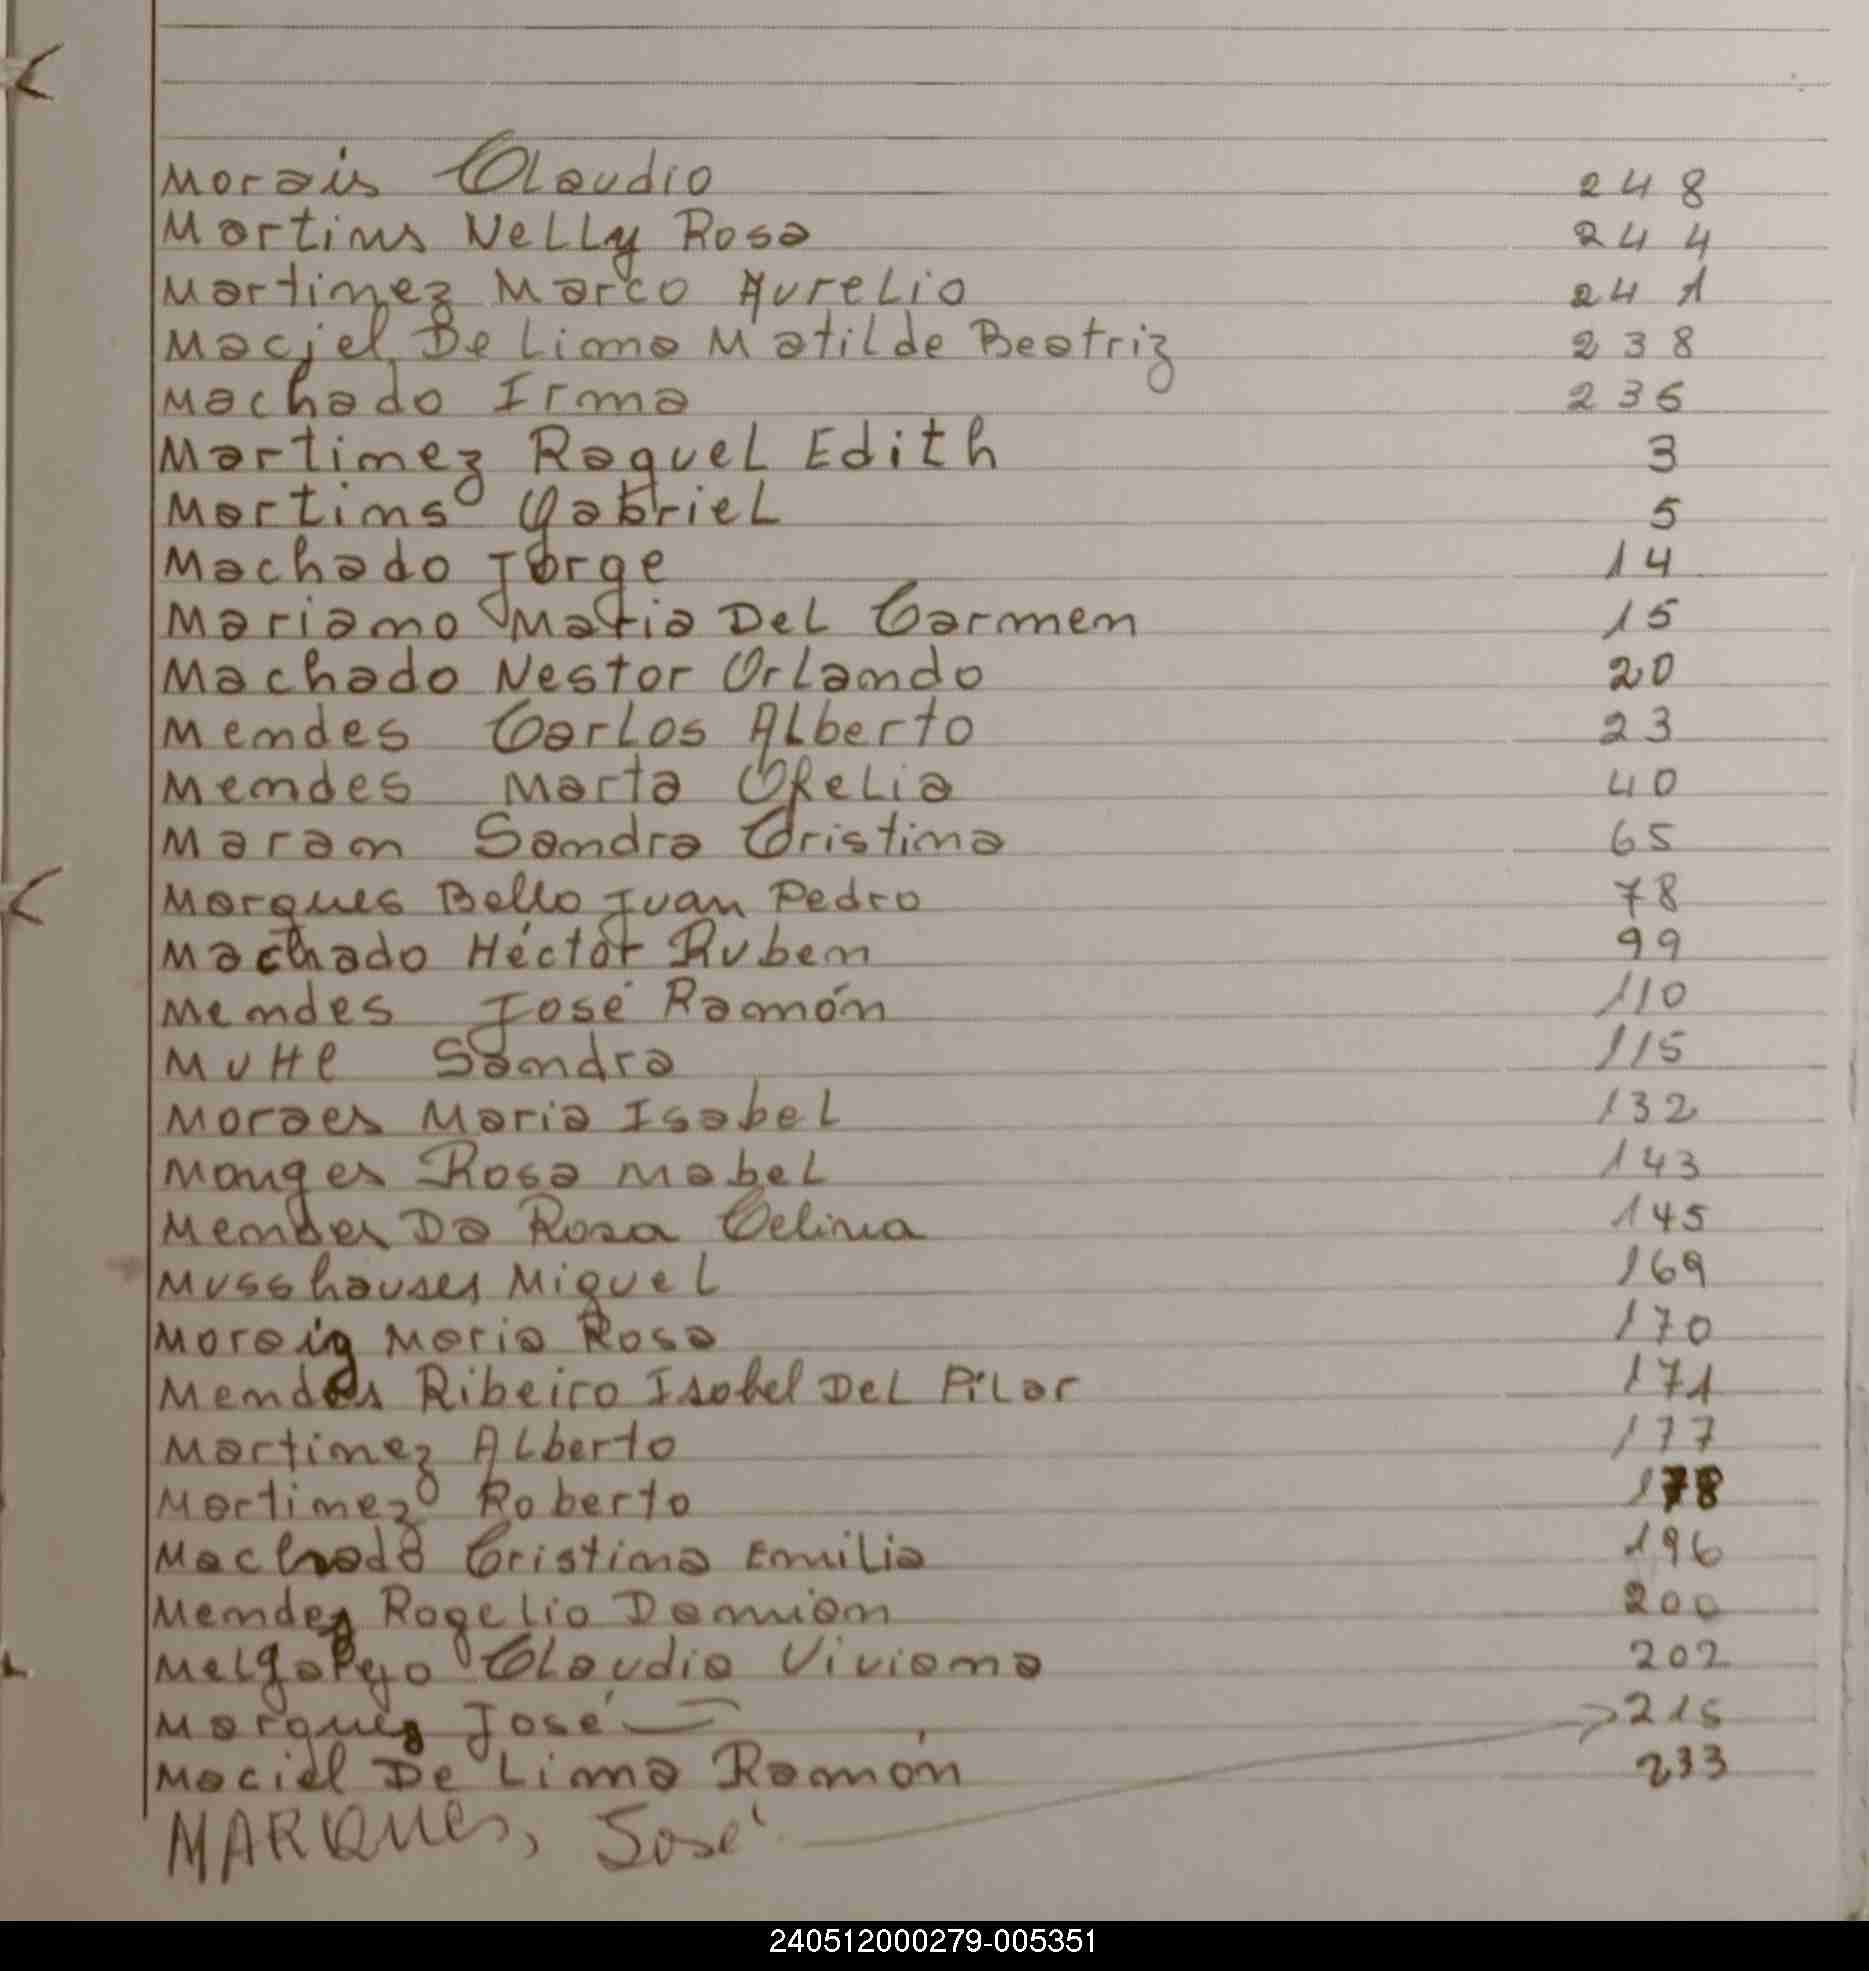 Morais Claudio 248
Martins Nelly Rosa 244
Martinez Marco Aurelio 241
Maciel De Lima Matilde Beatriz 238
Machado Irma 236
Martinez Raquel Edith 3
Martins Gabriel 5
Machado Jorge 14
Mariano Maria Del Carmen 15
Machado Nestor Orlando 20
Mendes Carlos Alberto 23
Mendes Marta Ofelia 40
Maran Sandra Cristina 65
Marques Bello Juan Pedro 78
Machado Héctor Ruben 99
Mendes José Ramón 110
MuHl Sandra 115
Moraes Maria Isabel 132
Monges Rosa Mabel 143
Mendes Da Rosa Celina 145
Musshauses Miguel 169
Moraig Maria Rosa 170
Mendes Ribeiro Isabel Del Pilar 171
Martinez Alberto 177
Martinez Roberto 178
Machado Cristina Emilia 196
Mendez Rogelio Damian 200
Melgarejo Claudia Viviana 202
Marques José 215
Maciel De Lima Ramón 233
MARQues, José
240512000279-005351